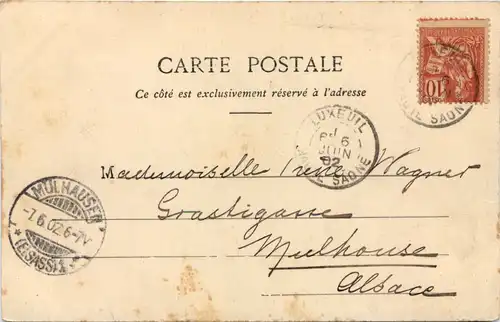 CARTE POSTALE
Ce côté est exclusivement réservé à l'adresse
10
LUXEUIL
6
JUIN
02
HAUTE SAONE
Mademoiselle Irène Wagner
Grastigasse
Mulhouse
Alsace
MÜLHAUSEN
-7.6.02.6-7V
(ELSASS)